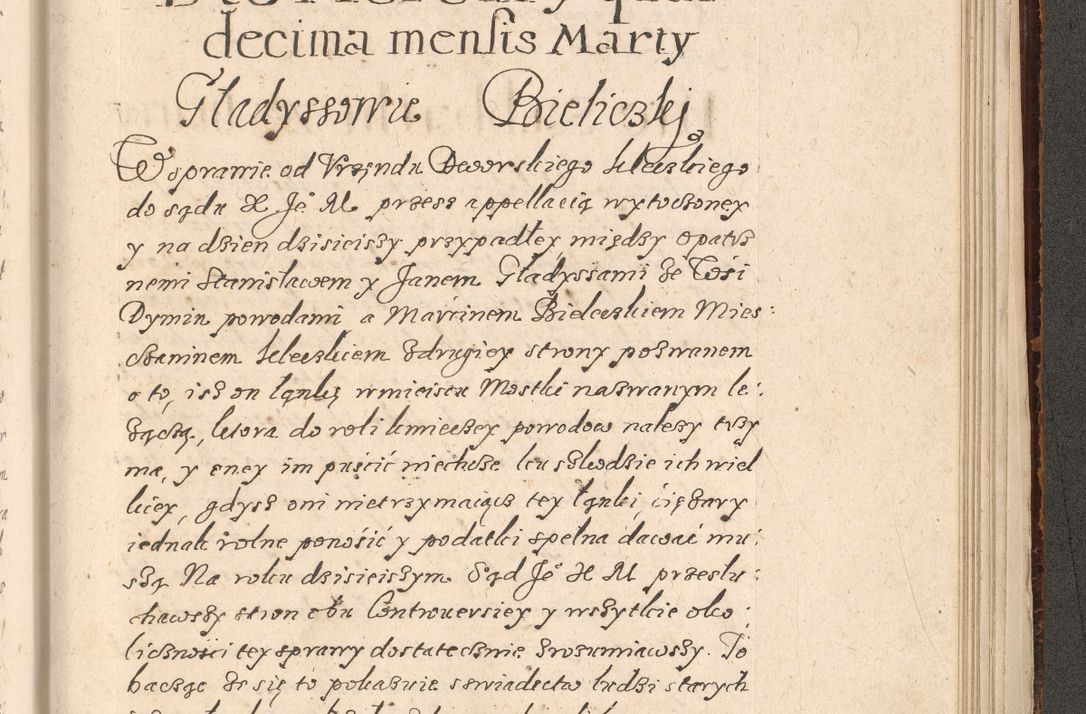 decima mensis Marty
Gładyssowie Bieliczkę
W sprawie od Vrzędu Dworskiego kleckiego
do sądu X Je° M przess appellacią wytoczoney
y na dzien dzisieiszy przypadłey między opatrz
nemi Stanisławem y Janem Gładyssami ze Wśi
Dymin powodami a Marcinem Bieleckiem Mies:
czaninem kleckiem zdrugiey strony pozwanem
o to, isz on łąnkę wmieiscu Mostki nazwanym le:
żączą, ktora do roli kmieczey powodow należy trzy
ma, y oney im puścić niechcze ku szkodzie ich wiel
kiey, gdysz oni nietrzymaiącz tey łąnki ciężary
iednak rolne ponośić y podatki spełna dawać mu:
szą Na roku dzisieiszym Sąd Je° X M przesłu:
chawszy stron obu Controuersiey y wszytkie oko:
liczności tey sprawy dostatecznie zrozumiawszy. To
bacząc że się to pokazuie sswiadectw ludzi starych